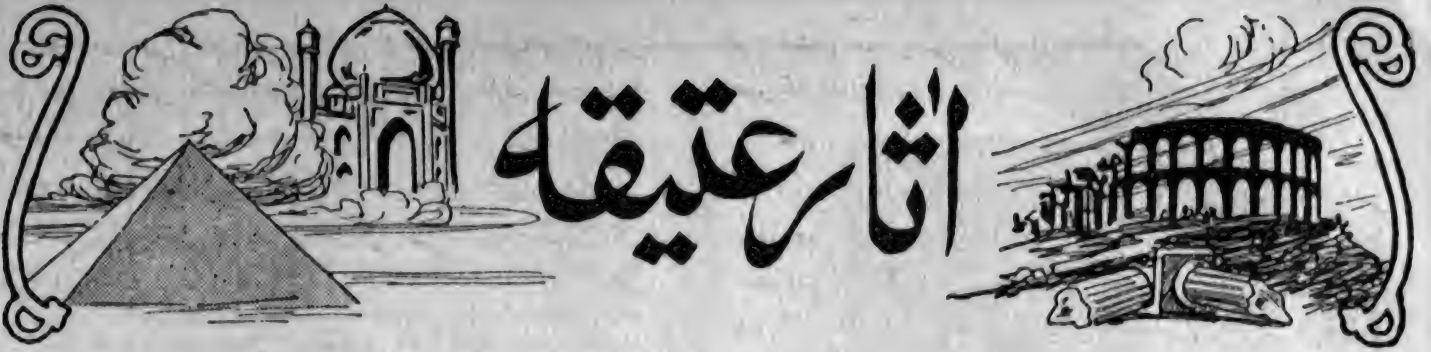 اٰثار عتیقه